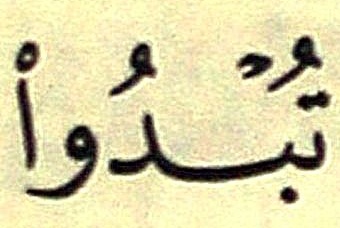 تُبْدُواْ